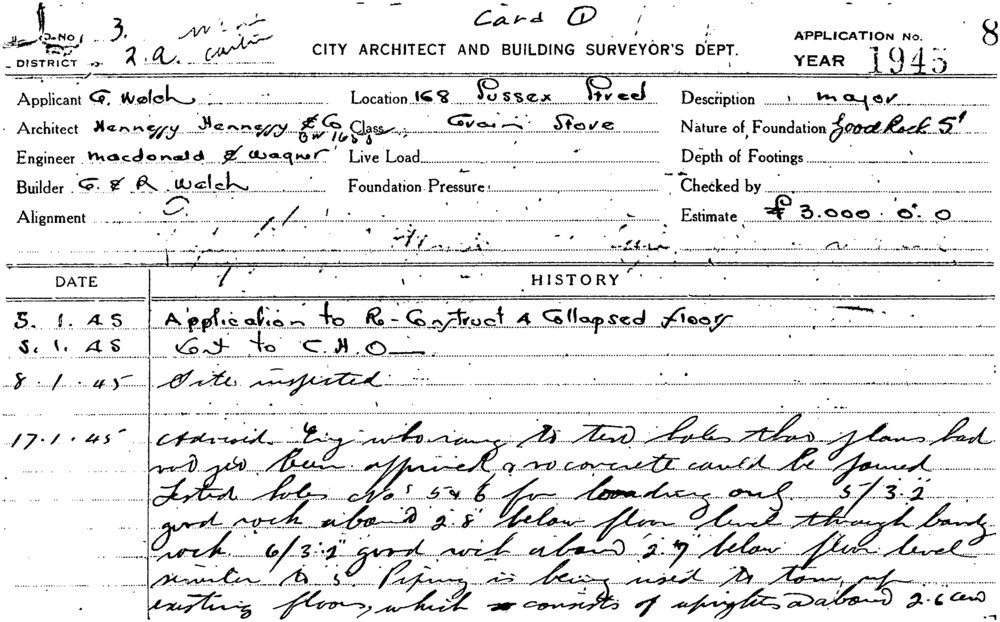 Card 1
D. No 3.
8
DISTRICT 2.a.
CITY ARCHITECT AND BUILDING SURVEYOR'S DEPT.
APPLICATION No.
YEAR 1945
Applicant G. Welch Location 168 Sussex Street Description major
Architect Hennessy Hennessy & Co Class Grain Store Nature of Foundation Good Rock 5'
Engineer Macdonald & Wagner Live Load Depth of Footings
Builder G. & R Welch Foundation Pressure Checked by
Alignment Estimate £ 3.000. 0. 0
DATE HISTORY
5. 1. 45 Application to Re-Construct 4 Collapsed floors
5. 1. 45 Sent to C.H.O
8. 1. 45 Site inspected
17.1.45 Advised Eng who rang to test holes that plans had
not yet been approved & no concrete could be poured
Tested holes Nos 5 & 6 for only. 5/3.2"
good rock about 2.8" below floor level through bandy
rock. 6/3.2" good rock about 2.7" below floor level
similar to 5 Piping is being used to tom up
existing floors, which consists of uprights at about 2.6 cens